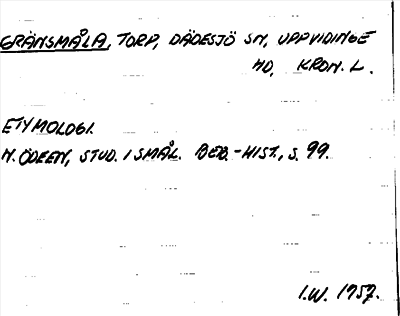 GRÄNSMÅLA, TORP, DÄDESJÖ SN, UPPVIDINGE
HD, KRON. L.
ETYMOLOGI.
N. ÖDEEN, STUD. I SMÅL. BEB.-HIST., S. 99.
I.W. 1957.